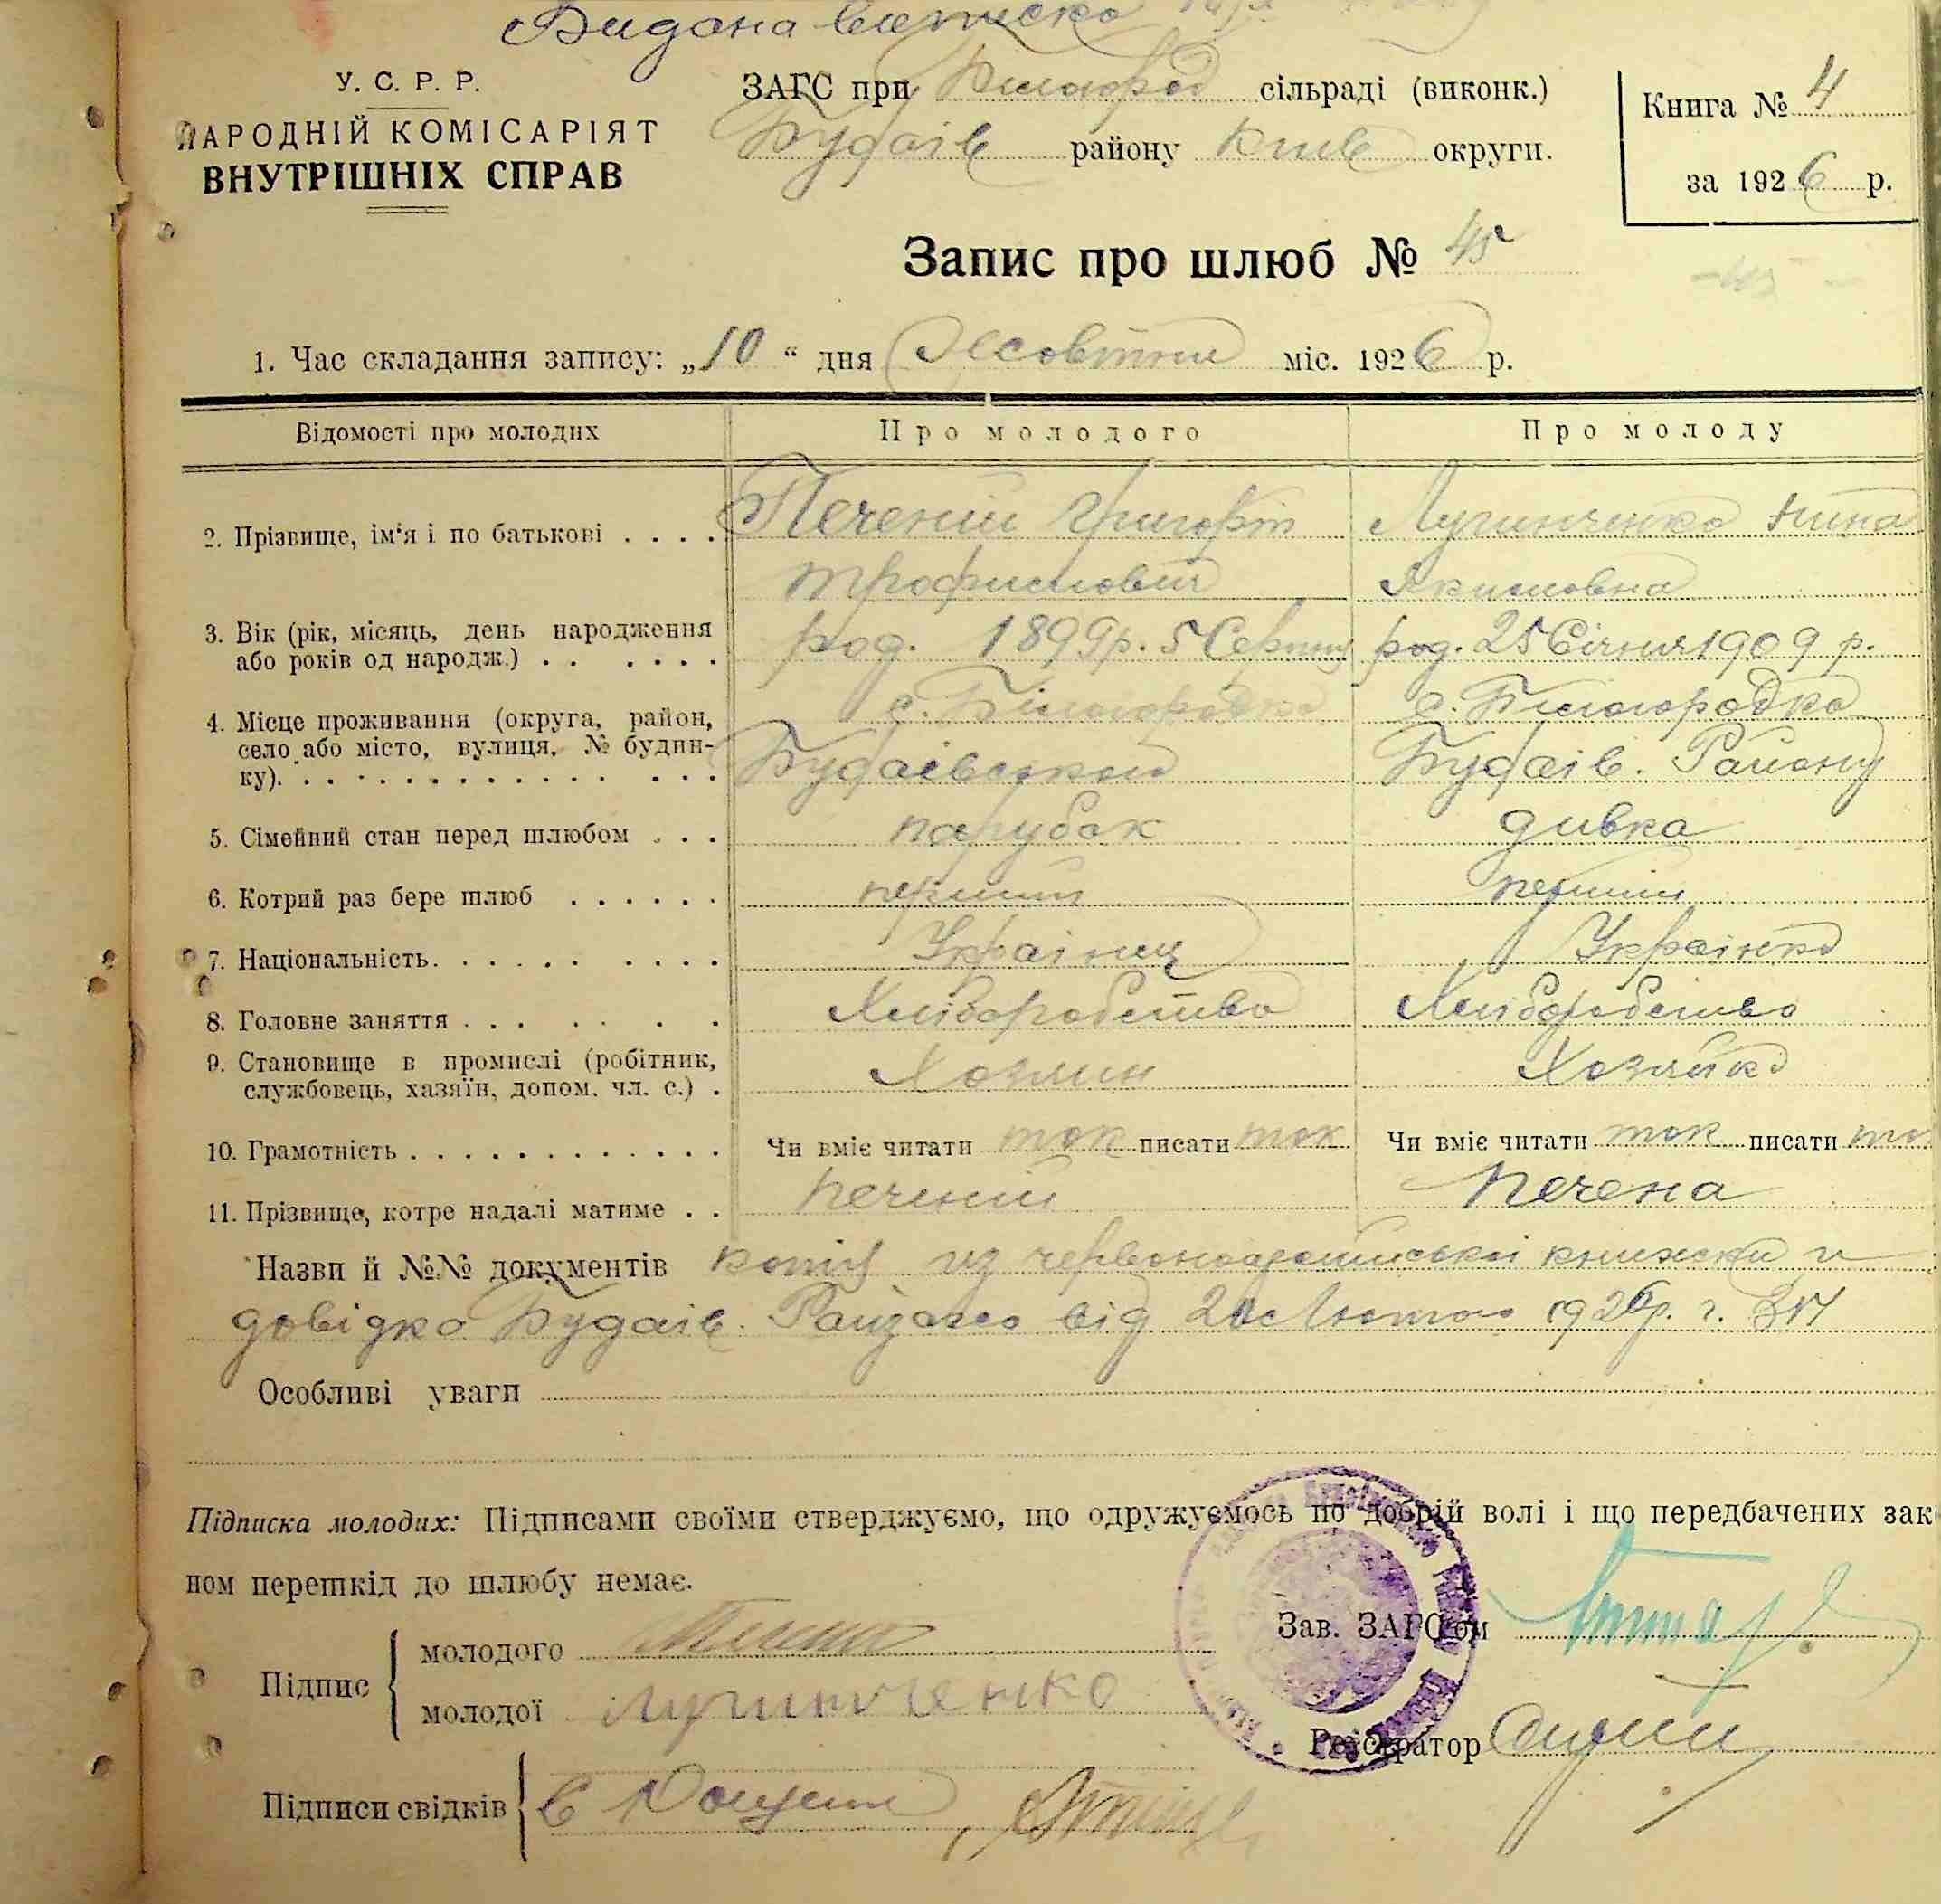 Видана виписка
У. С. Р. Р.
НАРОДНІЙ КОМІСАРІЯТ
ВНУТРІШНІХ СПРАВ
ЗАГС при Білогород сільраді (виконк.)
Будаїв району Київ округи.
Книга № 4
за 1926 р.
Запис про шлюб № 45
1. Час складання запису: „10“ дня Жовтня міс. 1926 р.
Відомості про молодих
Про молодого
Про молоду
2. Прізвище, ім'я і по батькові . . . .
Печений Григорій
Трофимович
Лучинченко Нина
Якимовна
3. Вік (рік, місяць, день народження
або років од народж.) . . . . . .
род. 1899р. 5 Серпня
род. 25 Січня 1909 р.
4. Місце проживання (округа, район,
село або місто, вулиця, № будин-
ку). . . . . . . . . . . . . . . .
с. Білогородка
Будаївського
с. Білогородка
Будаїв. Району
5. Сімейний стан перед шлюбом . . .
парубок
дивка
6. Котрий раз бере шлюб . . . . . .
перший
перший
7. Національність. . . . . . . . . .
Українец
Українка
8. Головне заняття . . . . . . .
Хліборобство
Хліборобство
9. Становище в промислі (робітник,
службовець, хазяїн, допом. чл. с.) .
Хозяин
Хозяйка
10. Грамотність . . . . . . . . . . . . .
Чи вміє читати так писати так
Чи вміє читати так писати та
11. Прізвище, котре надалі матиме . .
Печений
Печена
Назви й №№ документів копія из червоноармійської книжки и
довідка Будаїв. Райзагса від Лютого 1926р. ч. 314
Особливі уваги
Підписка молодих: Підписами своїми стверджуємо, що одружуємось по добрій волі і що передбачених зако
ном перешкід до шлюбу немає.
Підпис
молодого
молодої Лучинченко
Зав. ЗАГСом
Реєстратор
Підписи свідків